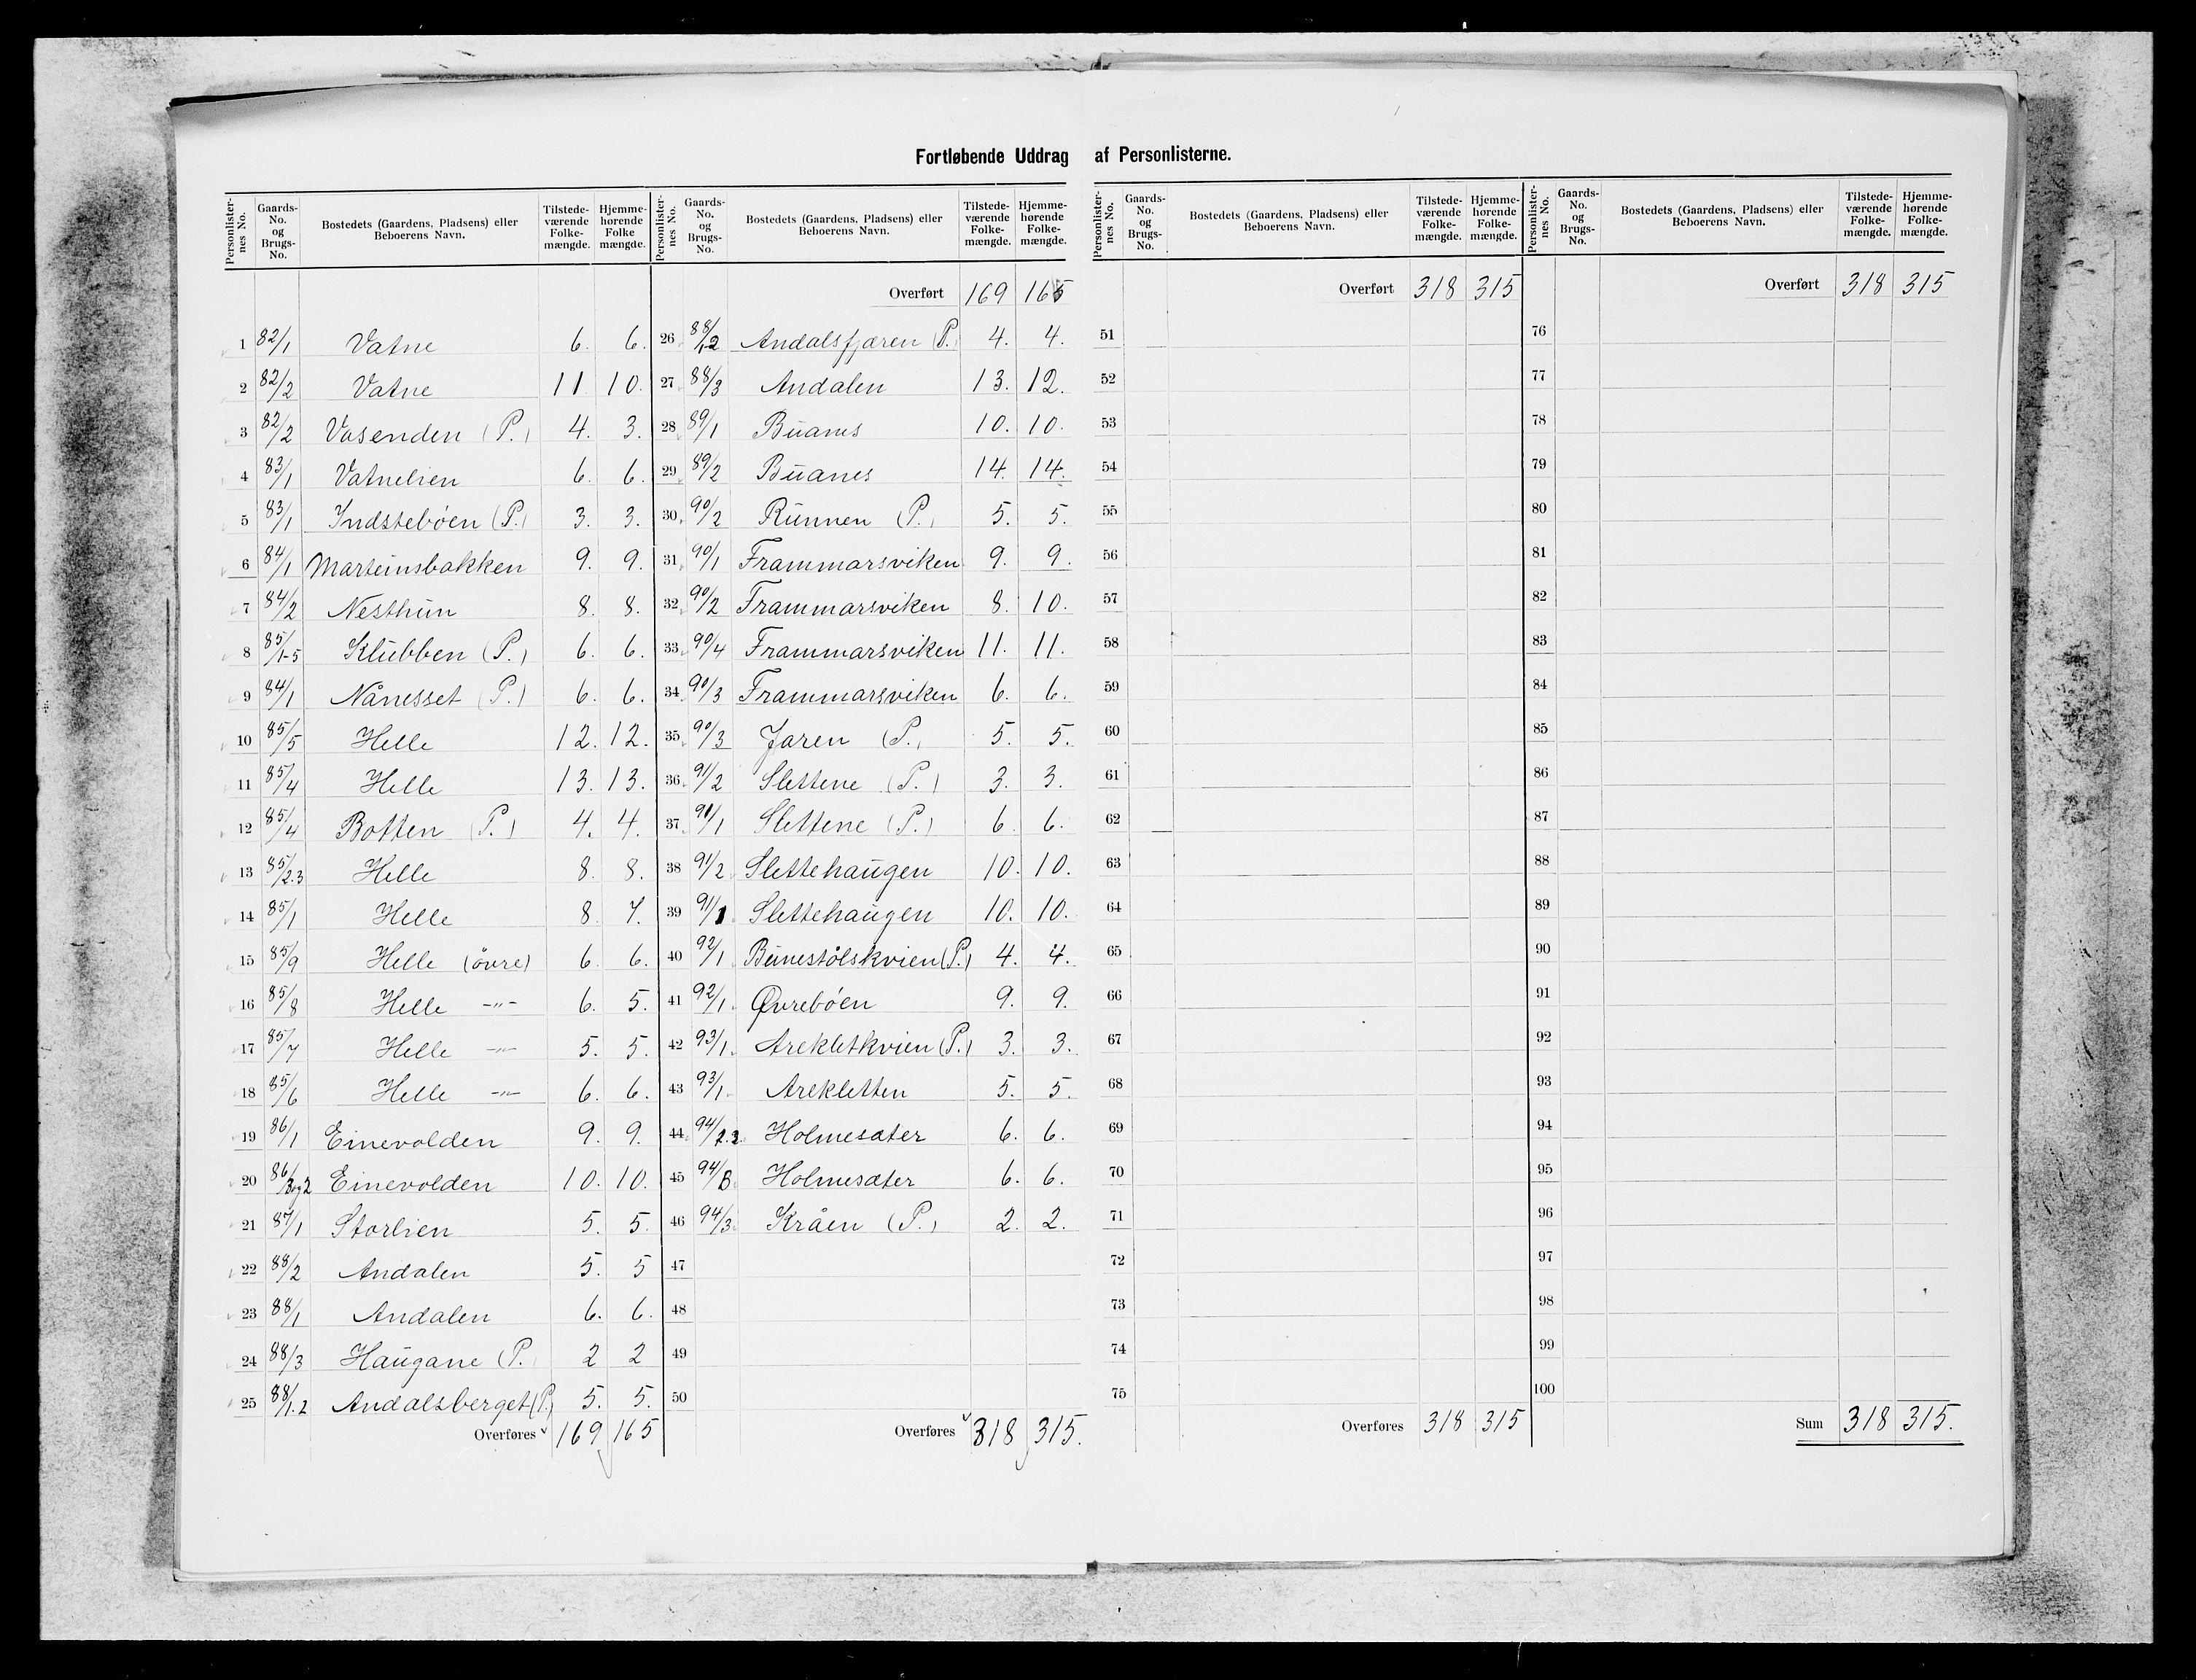 Fortløbende Uddrag af Personlisterne.
Personlisternes No. | Gaards-No. og Brugs-No. | Bostedets (Gaardens, Pladsens) eller Beboerens Navn. | Tilstedeværende Folkemængde. | Hjemmehørende Folkemængde.
1 82/1 Vatne 6. 6.
2 82/2 Vatne 11 10.
3 82/2 Vasenden (P.) 4. 3.
4 83/1 Vatnelien 6. 6.
5 83/1 Indstebøen (P.) 3. 3.
6 84/1 Marteinsbakken 9. 9.
7 84/2 Nesthun 8. 8.
8 85/1-5 Klubben (P.) 6. 6.
9 84/1 Nånesset (P.) 6. 6.
10 85/5 Helle 12. 12.
11 85/4 Helle 13. 13.
12 85/4 Botten (P.) 4. 4.
13 85/2.3 Helle 8. 8.
14 85/1 Helle 8. 7.
15 85/9 Helle (övre) 6. 6.
16 85/8 Helle -"- 6. 5.
17 85/7 Helle -"- 5. 5.
18 85/6 Helle -"- 6. 6.
19 86/1 Einevolden 9. 9.
20 86/3og2 Einevolden 10. 10.
21 87/1 Storlien 5. 5.
22 88/2 Andalen 5. 5
23 88/1 Andalen 6. 6.
24 88/3 Haugane (P.) 2 2
25 88/1.2 Andalsberget (P.) 5. 5.
Overføres 169 165
Personlisternes No. | Gaards-No. og Brugs-No. | Bostedets (Gaardens, Pladsens) eller Beboerens Navn. | Tilstedeværende Folkemængde. | Hjemmehørende Folkemængde.
Overført 169 165
26 88/1.2 Andalsfjæren (P.) 4. 4.
27 88/3 Andalen 13. 12.
28 89/1 Buanes 10. 10.
29 89/2 Buanes 14. 14.
30 90/2 Runnen (P.) 5. 5.
31 90/1 Frammarsviken 9. 9.
32 90/2 Frammarsviken 8. 10.
33 90/4 Frammarsviken 11. 11.
34 90/3 Frammarsviken 6. 6.
35 90/3 Jaren (P.) 5. 5.
36 91/2 Slettene (P.) 3. 3.
37 91/1 Slettene (P.) 6 6.
38 91/2 Slettehaugen 10. 10.
39 91/1 Slettehaugen 10. 10.
40 92/1 (P.) 4. 4.
41 92/1 Øvrebøen 9. 9.
42 93/1 Arekletkvien (P.) 3. 3.
43 93/1 Arekletten 5. 5.
44 94/2.3 Holmesæter 6. 6.
45 94/ Holmesæter 6. 6.
46 94/3 Kråen (P.) 2. 2.
47
48
49
50
Overføres 318 315.
Personlisternes No. | Gaards-No. og Brugs-No. | Bostedets (Gaardens, Pladsens) eller Beboerens Navn. | Tilstedeværende Folkemængde. | Hjemmehørende Folkemængde.
Overført 318 315
51
52
53
54
55
56
57
58
59
60
61
62
63
64
65
66
67
68
69
70
71
72
73
74
75
Overføres 318 315
Personlisternes No. | Gaards-No. og Brugs-No. | Bostedets (Gaardens, Pladsens) eller Beboerens Navn. | Tilstedeværende Folkemængde. | Hjemmehørende Folkemængde.
Overført 318 315
76
77
78
79
80
81
82
83
84
85
86
87
88
89
90
91
92
93
94
95
96
97
98
99
100
Sum 318 315.